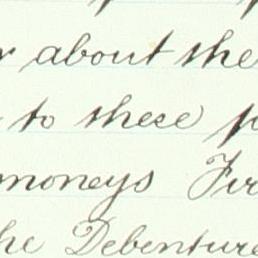 about the
to these
moneys Fir
he Debenture